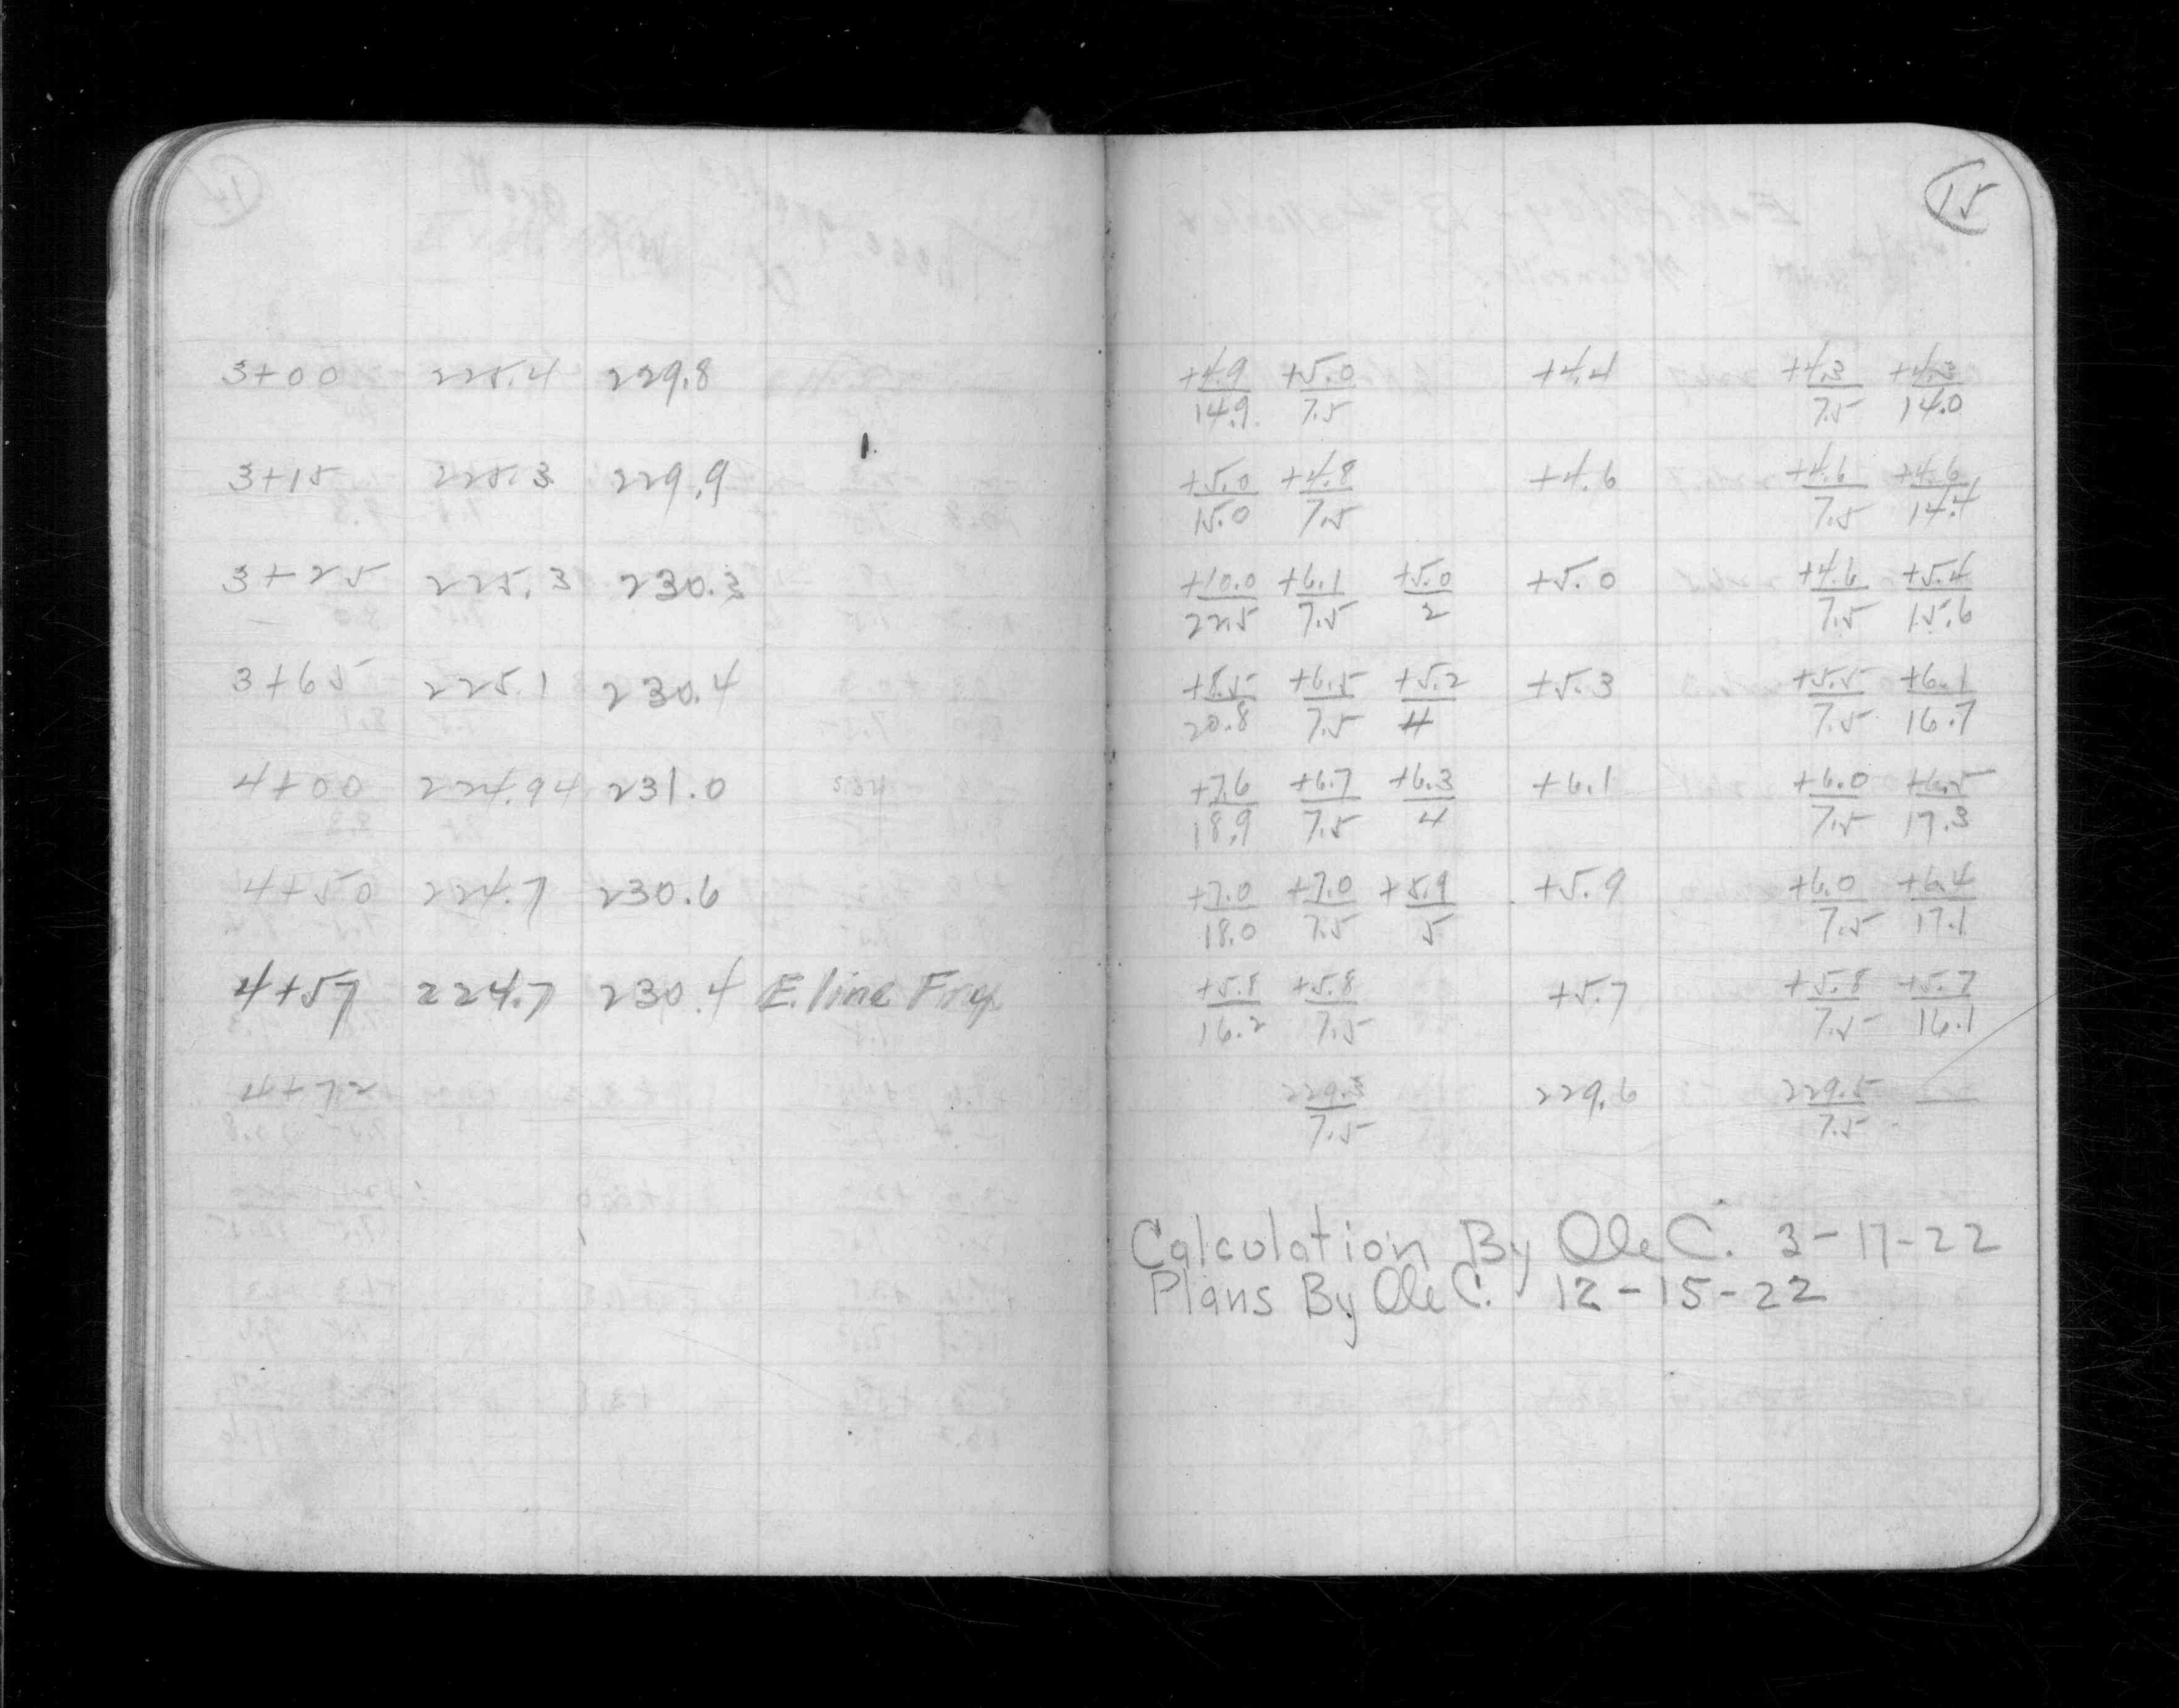 15
3+00 225.4 229.8 +4.9/14.9 +5.0/7.5 +4.4 +4.3/7.5 +4.3/14.0
3+15 225.3 229.9 +5.0/15.0 +4.8/7.5 +4.6 +4.6/7.5 +4.6/14.4
3+25 225.3 230.3 +10.0/22.5 +6.1/7.5 +5.0/2 +5.0 +4.6/7.5 +5.4/15.6
3+65 225.1 230.4 +8.5/20.8 +6.5/7.5 +5.2/4 +5.3 +5.5/7.5 +6.1/16.7
4+00 224.94 231.0 +7.6/18.9 +6.7/7.5 +6.3/4 +6.1 +6.0/7.5 +6.5/17.3
4+50 224.7 230.6 +7.0/18.0 +7.0/7.5 +5.9/5 +5.9 +6.0/7.5 +6.4/17.1
4+57 224.7 230.4 E. line +5.8/16.2 +5.8/7.5 +5.7 +5.8/7.5 +5.7/16.1
4+72 229.3/7.5 229.6 229.5/7.5
Calculation By Ole C. 3-17-22
Plans By Ole C. 12-15-22